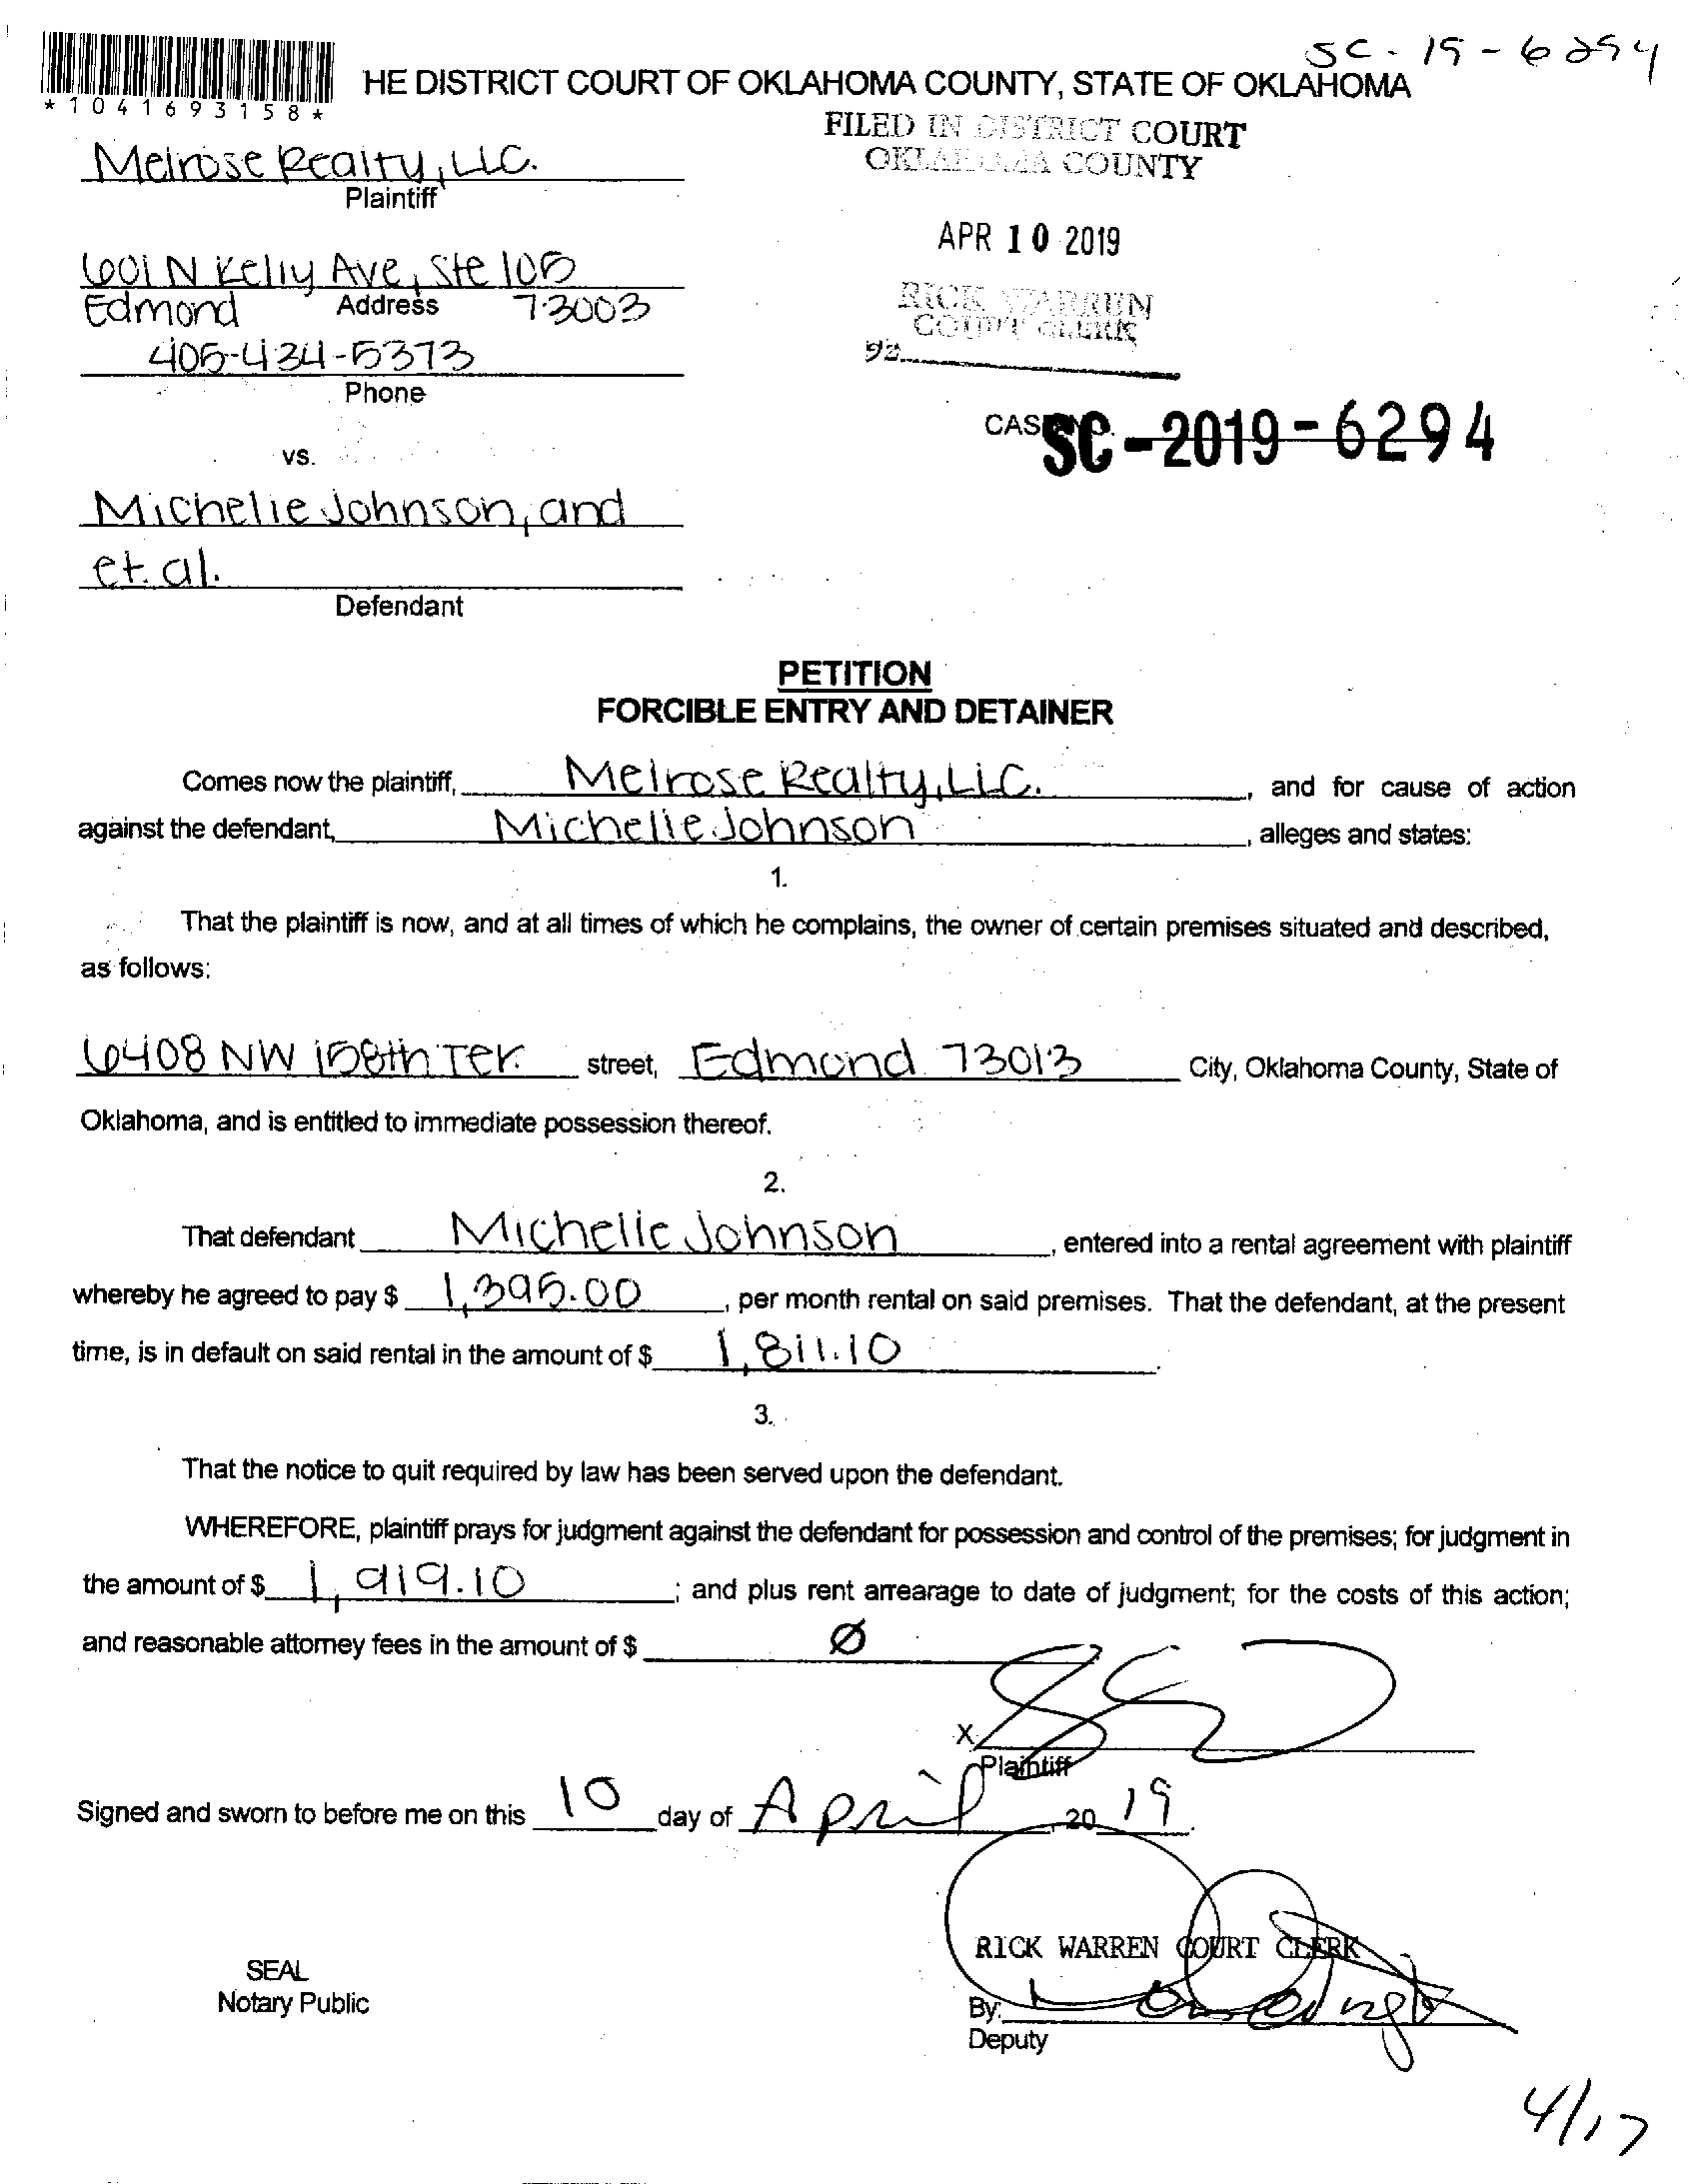 SC-19-6294
HE DISTRICT COURT OF OKLAHOMA COUNTY, STATE OF OKLAHOMA
*1041693158*
FILED IN DISTRICT COURT
OKLAHOMA COUNTY
Melrose Realty, LLC.
Plaintiff
APR 10 2019
601 N Kelly Ave, Ste 105
Edmond Address 73003
RICK WARREN
COURT CLERK
405-434-5373
92
Phone
CASE NO.
SC-2019-6294
vs.
Michelle Johnson, and
et. al.
Defendant
PETITION
FORCIBLE ENTRY AND DETAINER
Comes now the plaintiff, Melrose Realty, LLC. , and for cause of action
against the defendant, Michelle Johnson , alleges and states:
1.
That the plaintiff is now, and at all times of which he complains, the owner of certain premises situated and described,
as follows:
6408 NW 158th Ter. street, Edmond 73013 City, Oklahoma County, State of
Oklahoma, and is entitled to immediate possession thereof.
2.
That defendant Michelle Johnson , entered into a rental agreement with plaintiff
whereby he agreed to pay $ 1,395.00 , per month rental on said premises. That the defendant, at the present
time, is in default on said rental in the amount of $ 1,811.10 .
3.
That the notice to quit required by law has been served upon the defendant.
WHEREFORE, plaintiff prays for judgment against the defendant for possession and control of the premises; for judgment in
the amount of $ 1,919.10 ; and plus rent arrearage to date of judgment; for the costs of this action;
and reasonable attorney fees in the amount of $ Ø
X
Plaintiff
Signed and sworn to before me on this 10 day of April , 20 19.
RICK WARREN COURT CLERK
SEAL
Notary Public
By:
Deputy
4/17